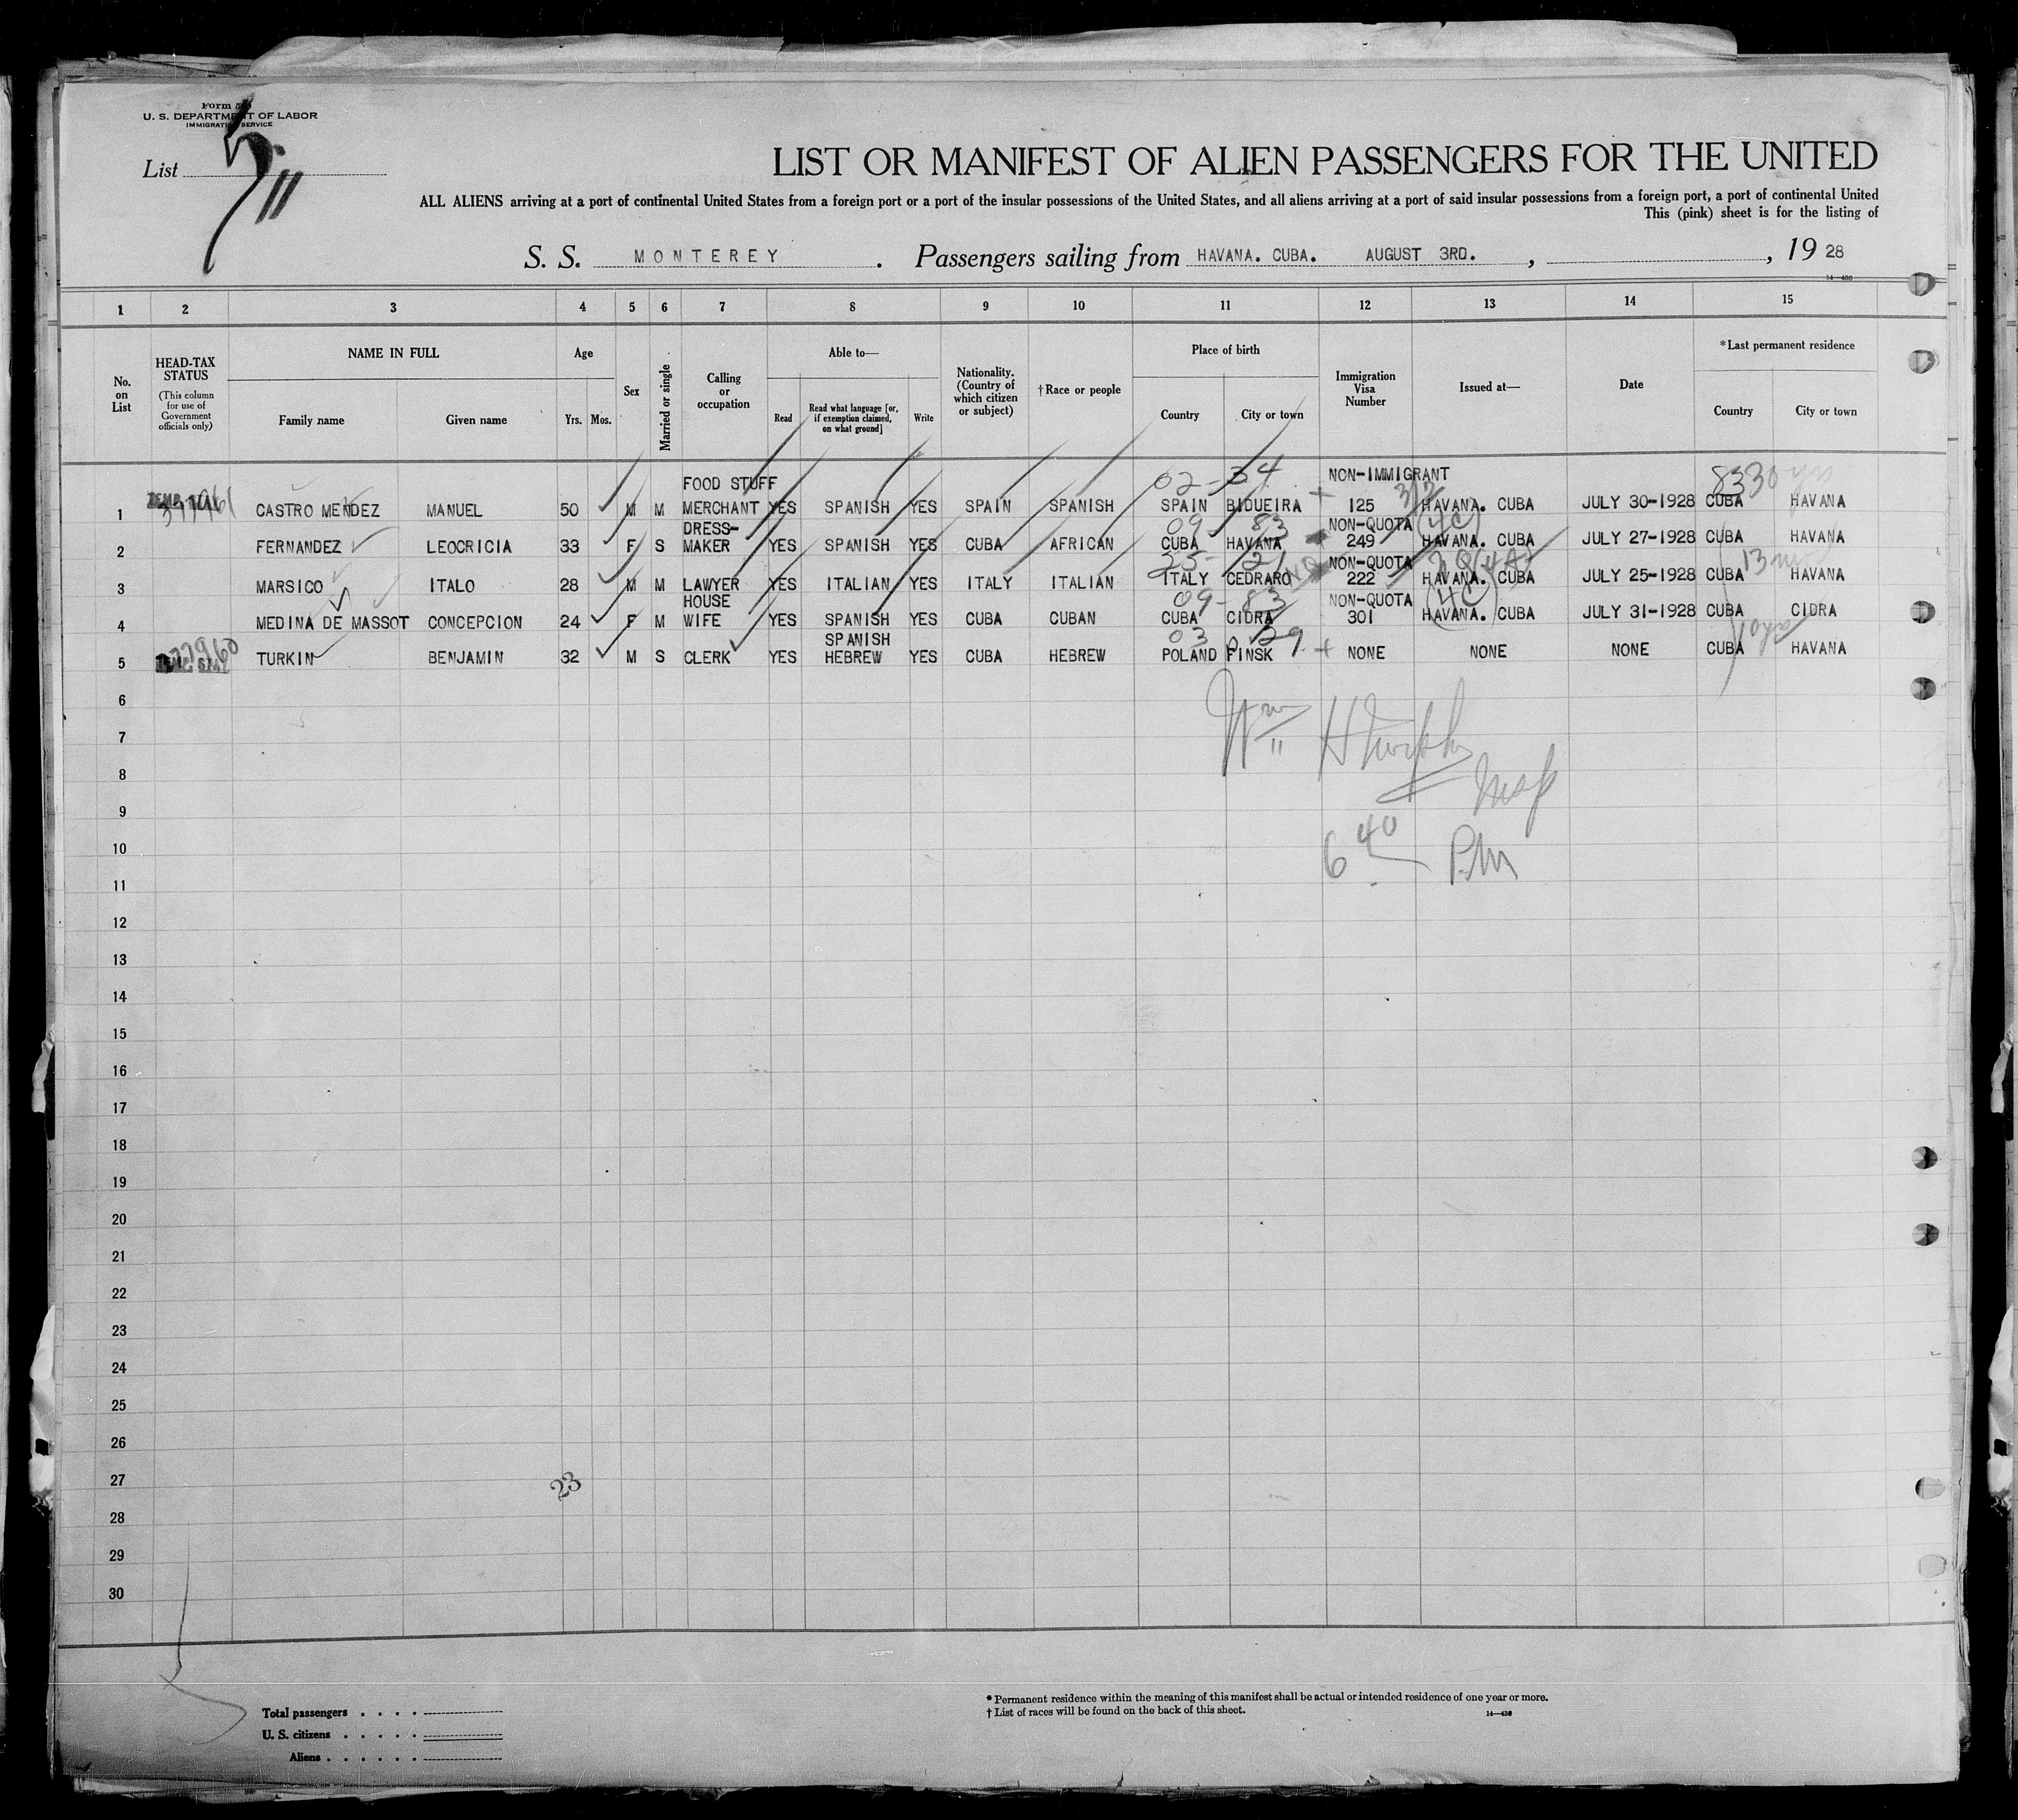 Form 500
U. S. DEPARTMENT OF LABOR
IMMIGRATION SERVICE
List 11
LIST OR MANIFEST OF ALIEN PASSENGERS FOR THE UNITED
ALL ALIENS arriving at a port of continental United States from a foreign port or a port of the insular possessions of the United States, and all aliens arriving at a port of said insular possessions from a foreign port, a port of continental United
This (pink) sheet is for the listing of
S. S. MONTEREY . Passengers sailing from HAVANA. CUBA. AUGUST 3RD. , , 19 28
14—430
1 2 3 4 5 6 7 8 9 10 11 12 13 14 15
No. on List
HEAD-TAX STATUS
(This column for use of Government officials only)
NAME IN FULL
Family name Given name
Age
Yrs. Mos.
Sex
Married or single
Calling or occupation
Able to—
Read
Read what language [or, if exemption claimed, on what ground]
Write
Nationality. (Country of which citizen or subject)
†Race or people
Place of birth
Country City or town
Immigration Visa Number
Issued at—
Date
*Last permanent residence
Country City or town
02-34 8330
FOOD STUFF NON-IMMIGRANT
1 CASTRO MENDEZ MANUEL 50 M M MERCHANT YES SPANISH YES SPAIN SPANISH SPAIN BIDUEIRA 125 HAVANA. CUBA JULY 30-1928 CUBA HAVANA
09-83 (4C)
DRESS- NON-QUOTA
2 FERNANDEZ LEOCRICIA 33 F S MAKER YES SPANISH YES CUBA AFRICAN CUBA HAVANA 249 HAVANA. CUBA JULY 27-1928 CUBA HAVANA
25-21
NON-QUOTA
3 MARSICO ITALO 28 M M LAWYER YES ITALIAN YES ITALY ITALIAN ITALY CEDRARO 222 HAVANA. CUBA JULY 25-1928 CUBA HAVANA
09-83 (4C)
HOUSE NON-QUOTA
4 MEDINA DE MASSOT CONCEPCION 24 F M WIFE YES SPANISH YES CUBA CUBAN CUBA CIDRA 301 HAVANA. CUBA JULY 31-1928 CUBA CIDRA
377960 03 29
SPANISH
5 TURKIN BENJAMIN 32 M S CLERK YES HEBREW YES CUBA HEBREW POLAND PINSK NONE NONE NONE CUBA HAVANA
6
7
8
9
10
11
12
13
14
15
16
17
18
19
20
21
22
23
24
25
26
27
28
29
30
Wm H Murphy
Insp
6 40 P.M
23
Total passengers
U. S. citizens
Aliens
* Permanent residence within the meaning of this manifest shall be actual or intended residence of one year or more.
† List of races will be found on the back of this sheet.
14—430